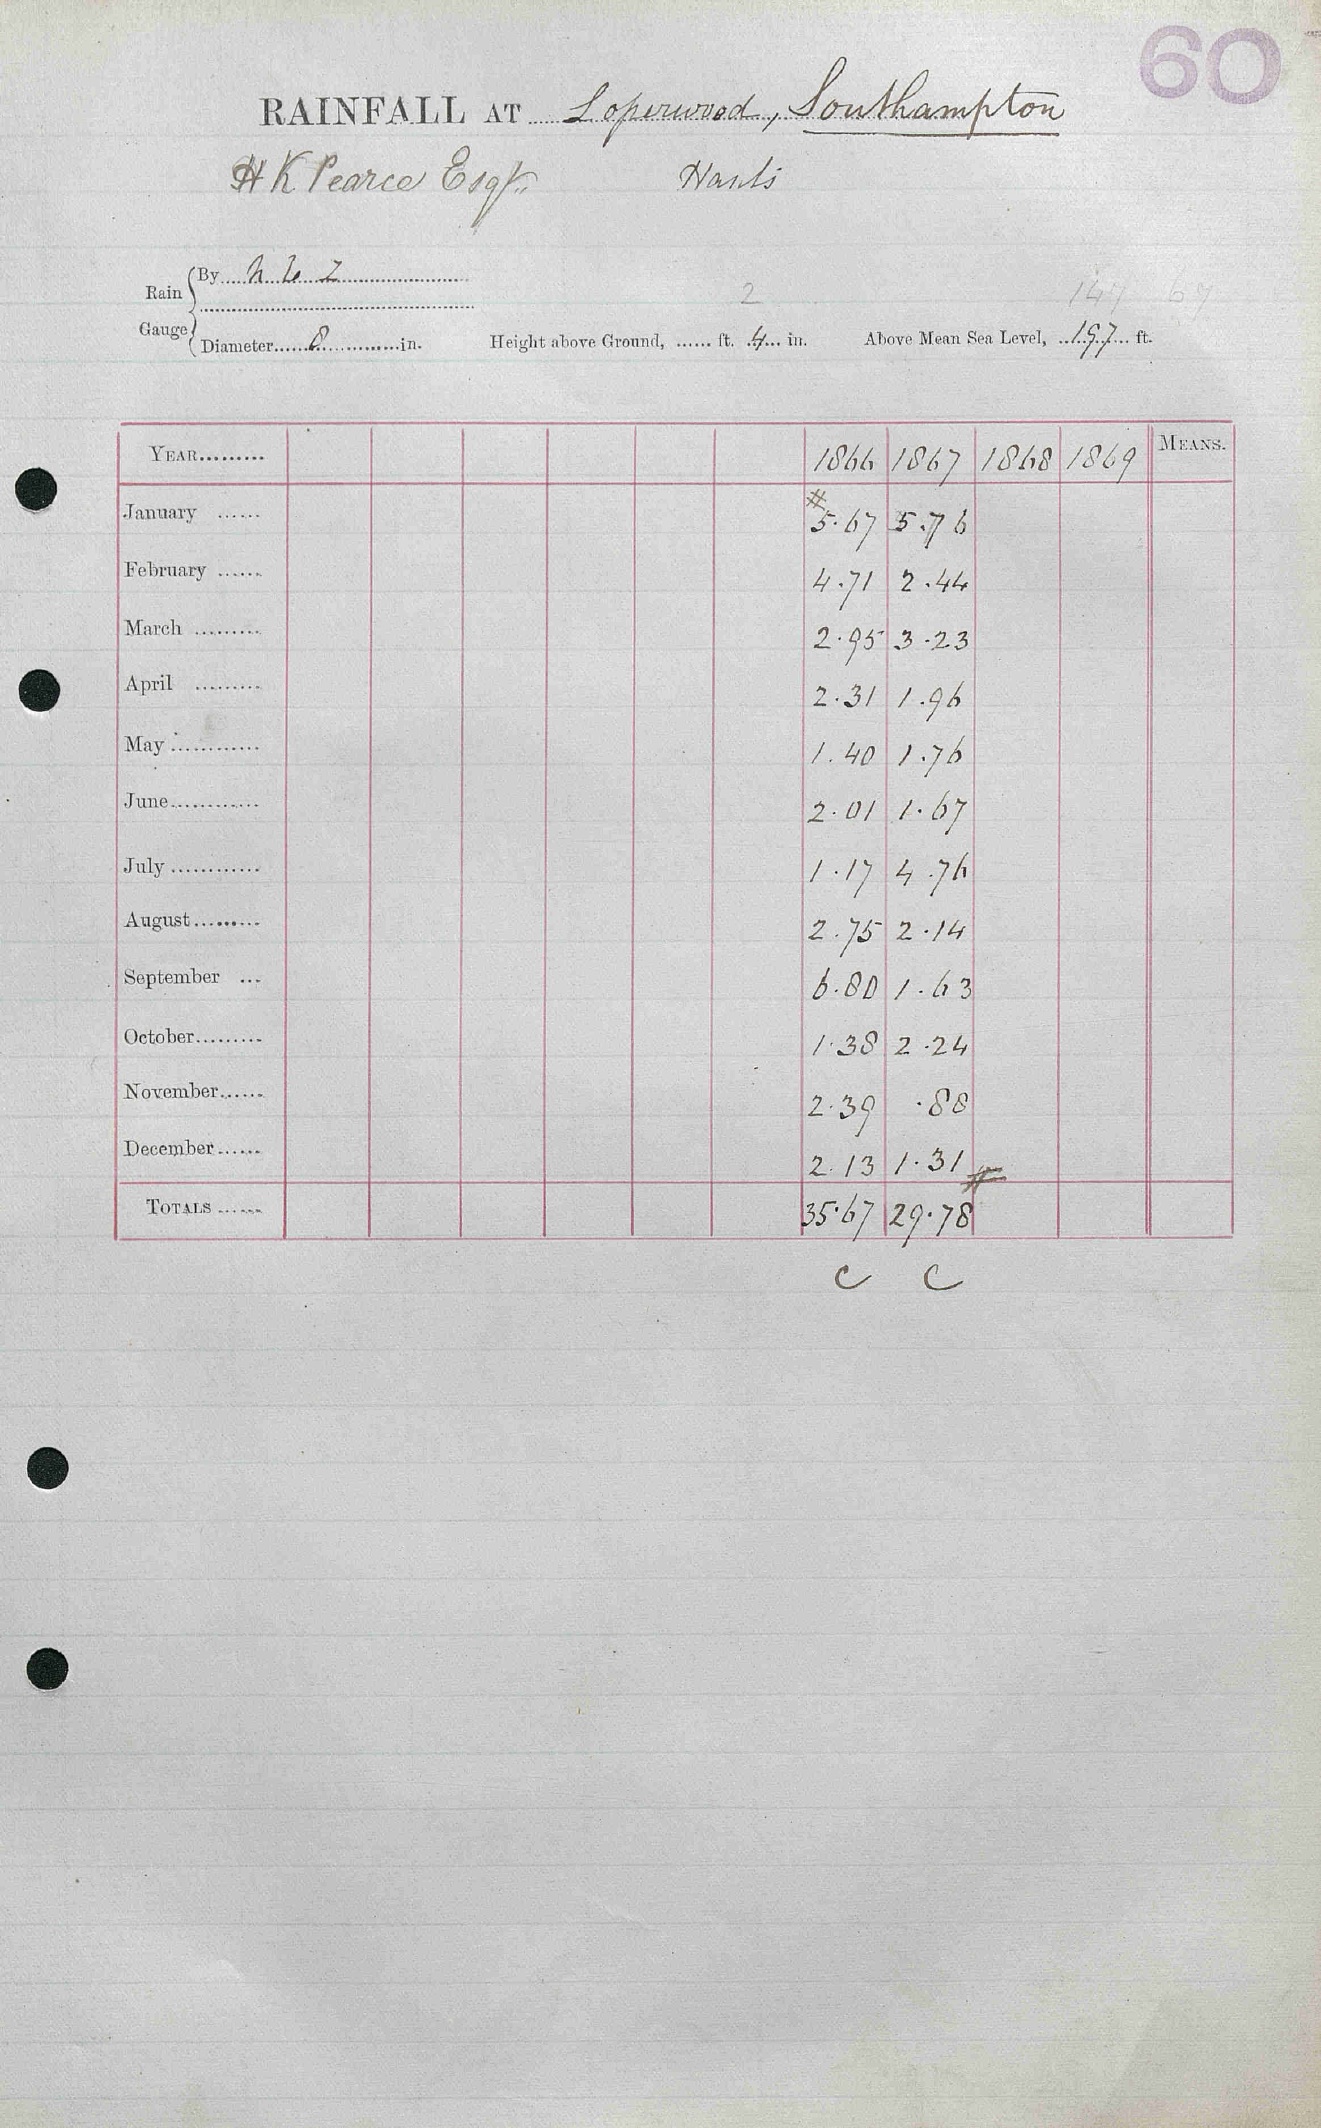 60
RAINFALL AT Loperwood, Southampton
H K Pearce Esqr. Hants
Rain Gauge
By
2
Diameter 8 in. Height above Ground, ...... ft. 4 in. Above Mean Sea Level, 197 ft.
YEAR......... 1866 1867 1868 1869 MEANS.
January ...... # 5.67 5.76
February ...... 4.71 2.44
March ......... 2.95 3.23
April ......... 2.31 1.96
May ............ 1.40 1.76
June............ 2.01 1.67
July ............ 1.17 4.76
August......... 2.75 2.14
September ... 6.80 1.63
October......... 1.38 2.24
November...... 2.39 .88
December...... 2.13 1.31 #
TOTALS ...... 35.67 29.78
C C